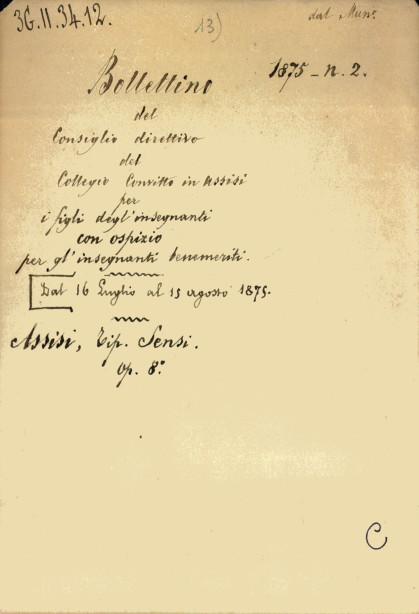 36.II.34.12.
13)
dal Mun°.
Bollettino
1875 - n. 2.
del
Consiglio direttivo
del
Collegio Convitto in Assisi
per
i figli degl'insegnanti
con ospizio
per gl'insegnanti benemeriti.
Dal 16 Luglio al 15 agosto 1875.
Assisi, Tip. Sensi.
op. 8°
C